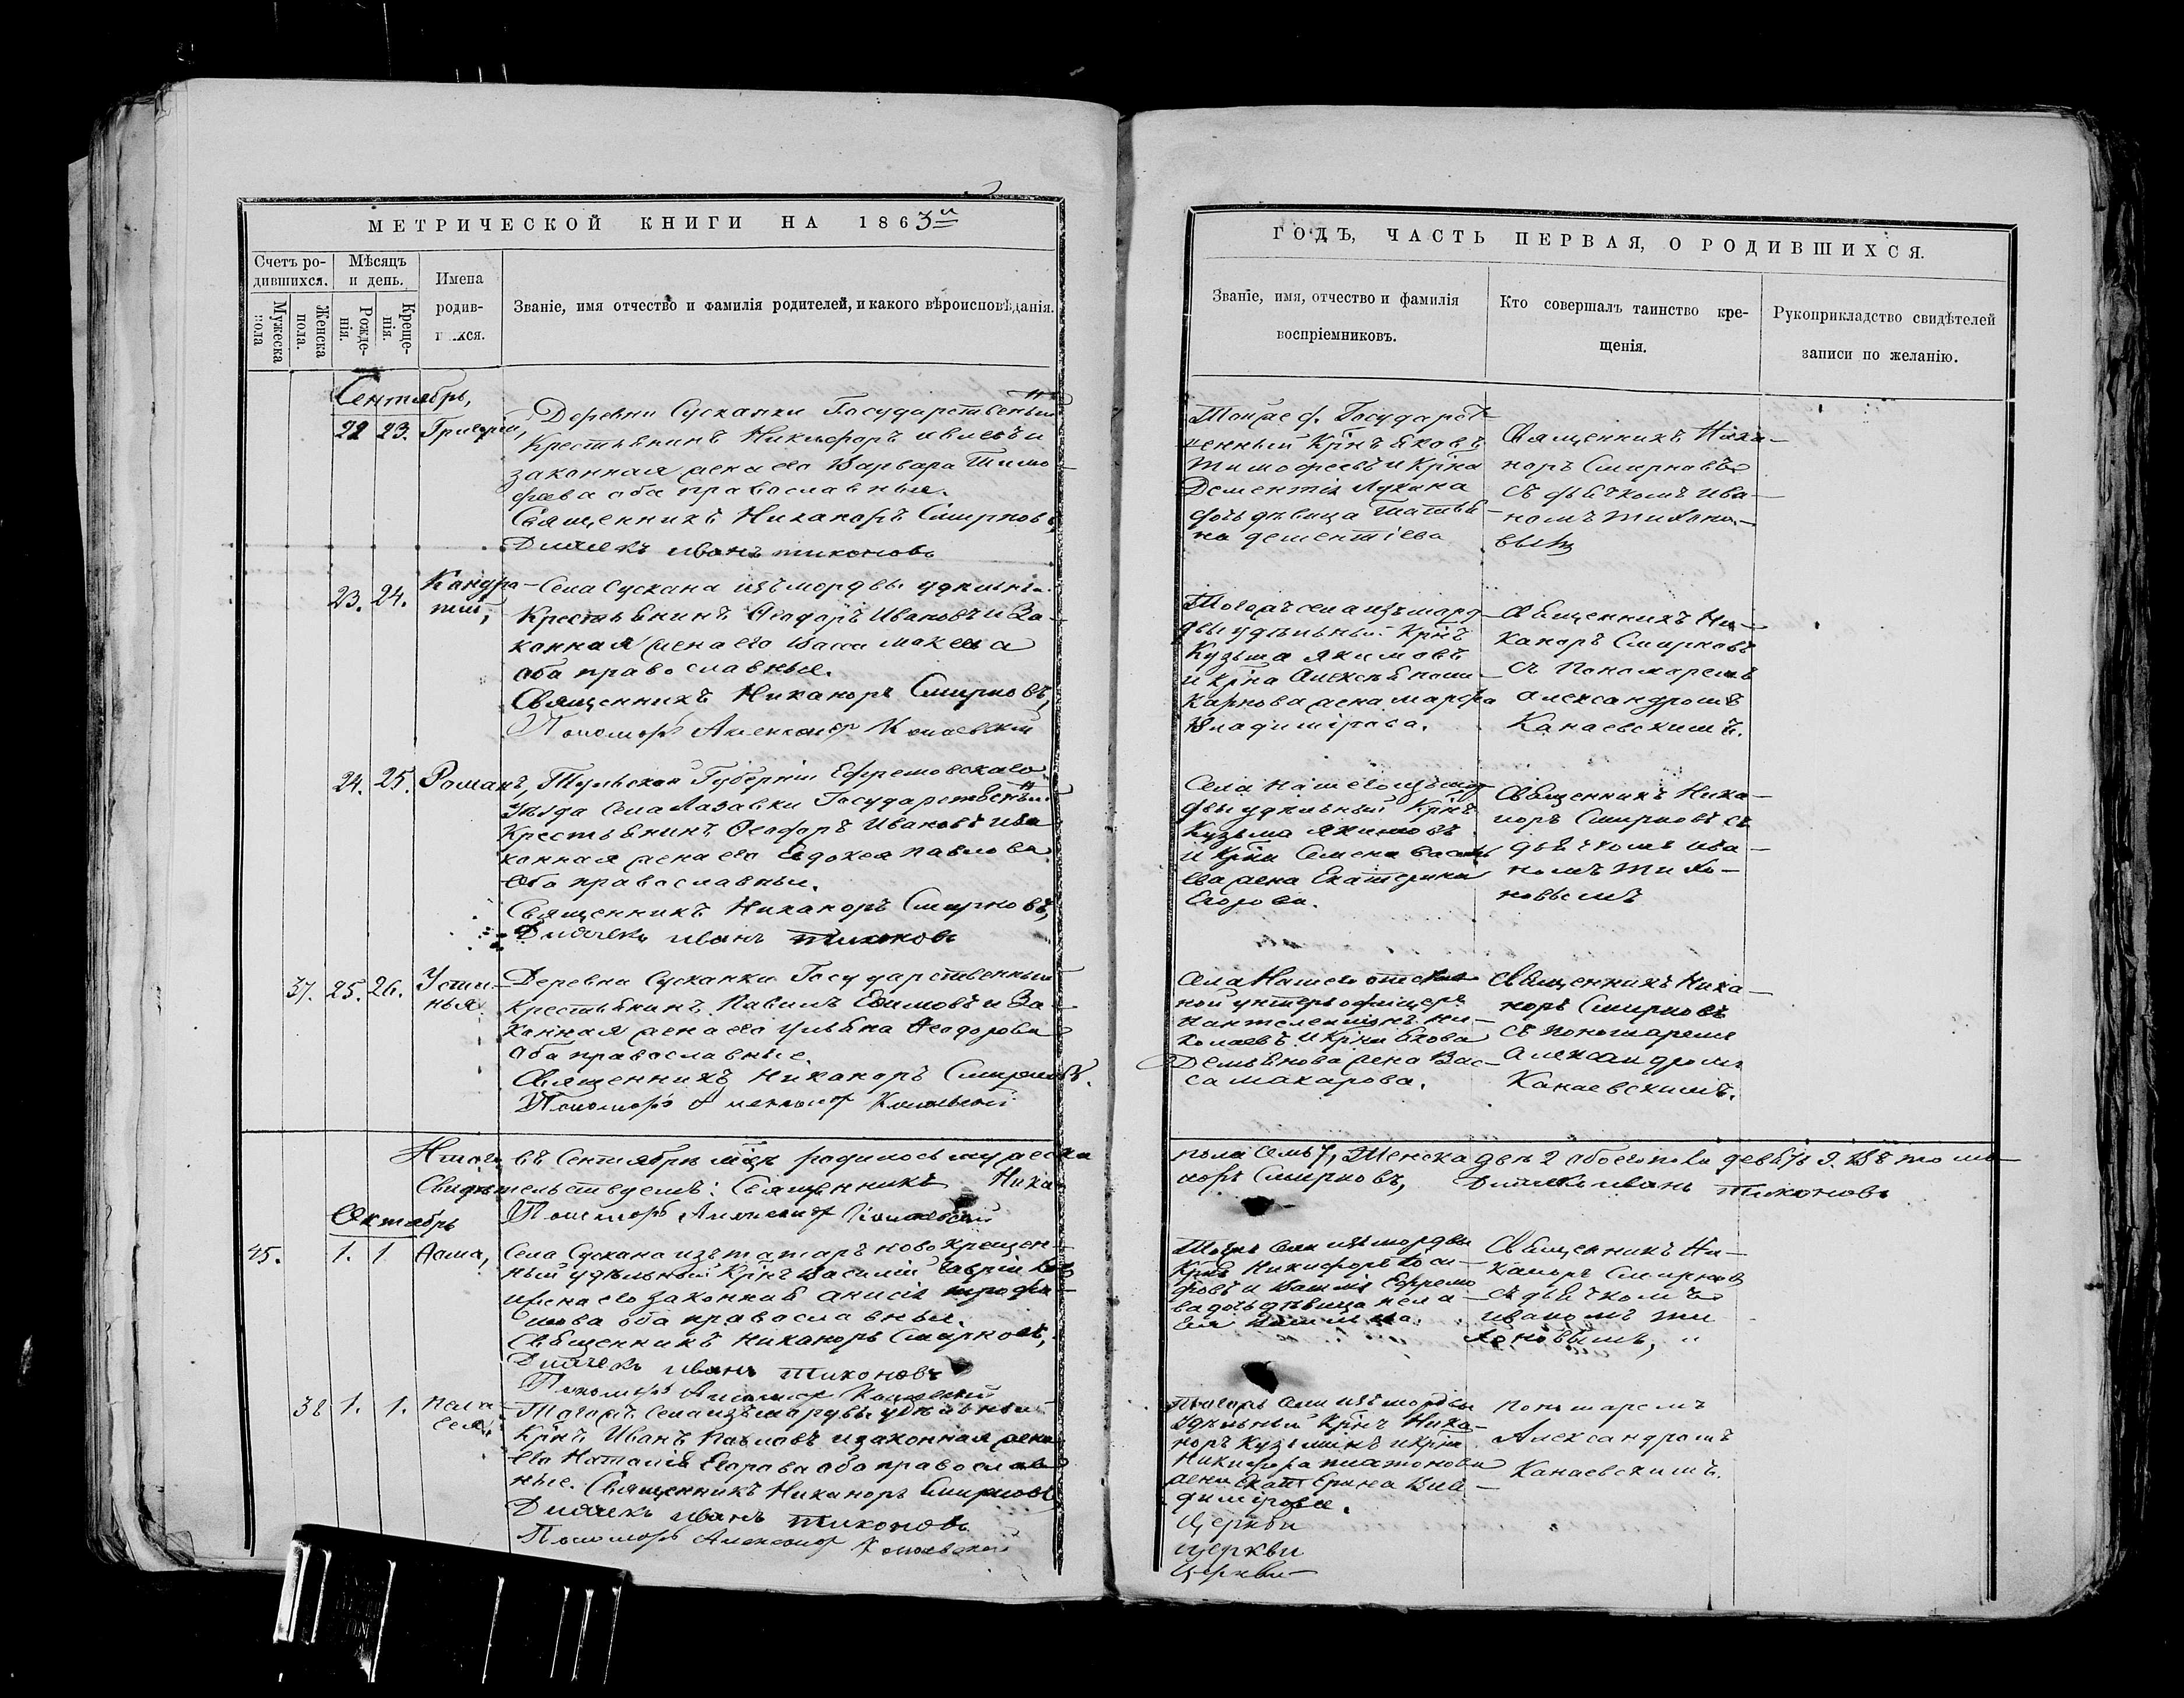 МЕТРИЧЕСКОЙ КНИГИ НА 1863й
Счетъ ро-
дившихся.
Мѣсяцъ
и день.
Имена
родив-
Мужеска
пола
Женска
пола.
Рожде-
нія.
Креще-
нія.
Званіе, имя отчество и фамилія родителей, и какого вѣроисповѣданія.
Сентябрь,
22 23. Григорій, Деревни Сускании Государственый
Крестьянинъ Никифоръ и
законная жена его Варвара Тимо-
феева оба православные.
Священникъ Никаноръ Смирновъ,
Дьячекъ иванъ тихоновъ
23. 24. Кандра-
тій,
Села Сускана изъ мордвы удѣльный
Крестьянинъ Ѳеодоръ Ивановъ и За-
конная жена его Васса
оба православные.
Священникъ Никаноръ Смирновъ,
Пономарь Александр Канаевский
24. 25. Романъ, Тульской Губерніи Ефремовскаго
Уѣзда Села Лазавки Государственый
Крестьянинъ Ѳеодоръ Ивановъ и за
конная жена его Евдокея павлова
оба православные.
Священникъ Никаноръ Смирновъ,
Дьячекъ иванъ тихоновъ
37. 25. 26. Усти-
нья.
Деревни Сускании Государственный
Крестьянинъ Павилъ Ефимовъ и За-
конная жена его ульяна Ѳеодорова
оба православные.
Священникъ Никаноръ Смирновъ.
Пономарь Александр Канаевский
Итого въ Сентябрѣ мцѣ родилось мужеска
Свидѣтельствуемъ: Священникъ Ника
Пономарь Александр Канаевский
Октябрь
45. 1. 1 Ѳома, Села Сускана изъ татаръ новокрещен-
ный удѣльный Крнъ Василій Гаврил
и жена его законная анисія трофи-
мова оба православные.
Священникъ Никаноръ Смирновъ,
Дьячекъ иванъ тихоновъ
Пономарь Александр Канаевский
38 1. 1. Пела-
гея,
Тогожъ села изъ мордвы удѣльный
Крнъ Иванъ Павловъ и законная жена
его Наталія Егорова оба православ
ные. Священникъ Никаноръ Смирновъ
Дьячекъ иванъ тихоновъ
Пономарь Александр Канаевский
ГОДЪ, ЧАСТЬ ПЕРВАЯ, О РОДИВШИХСЯ.
Званіе, имя, отчество и фамилія
воспріемниковъ.
Кто совершалъ таинство кре-
щенія.
Рукоприкладство свидѣтелей
записи по желанію.
Тойже д. Государст
венный Крнъ яковъ
Тимофеевъ и Крна
Дементія Лукина
дочь дѣвица татья-
на дементіева
Священникъ Ника-
норъ Смирновъ
съ дьячкомъ ива-
номъ тихоно-
вымъ
Тогожъ села изъ морд
двы удѣльный Крнъ
Кузьма якимовъ
и Крна Алексѣя
Карнова жена марфа
Владимірова.
Священникъ Ни-
каноръ Смирновъ
съ пономаремъ
александромъ
Канаевскимъ.
Села нашего изъ мор
двы удѣльный Крнъ
Кузьма якимовъ
и Крна Семена василь
ева жена Екатерина
Егорова.
Священникъ Ника-
норъ Смирновъ съ
дьячкомъ ива-
номъ тихо-
новымъ
Села Нашего отстав
ной унтеръ офицеръ
Пантелеймонъ ни-
колаевъ и Крна якова
Демьянова жена Вас-
са макарова.
Священникъ Ника-
норъ Смирновъ
съ пономаремъ
Александромъ
Канаевскимъ.
пола семь 7, Женска двѣ 2 обоего пола девять 9. Въ томъ
норъ Смирновъ, Дьячекъ иванъ тихоновъ
Тогожъ села изъ мордвы
Крнъ Никифоръ
и Ефремо
ва дочь дѣвица пела-
гея
Священникъ Ни-
каноръ Смирновъ
съ дьячкомъ
иваномъ ти
хоновымъ,
Тогожъ села изъ мордвы
Удѣльный Крнъ Ника-
норъ Кузьминъ и Крна
Никифора платонова
жена Екатерина Вла-
димирова.
Церкви
церкви
Церкви
пономаремъ
Александромъ
Канаевскимъ.